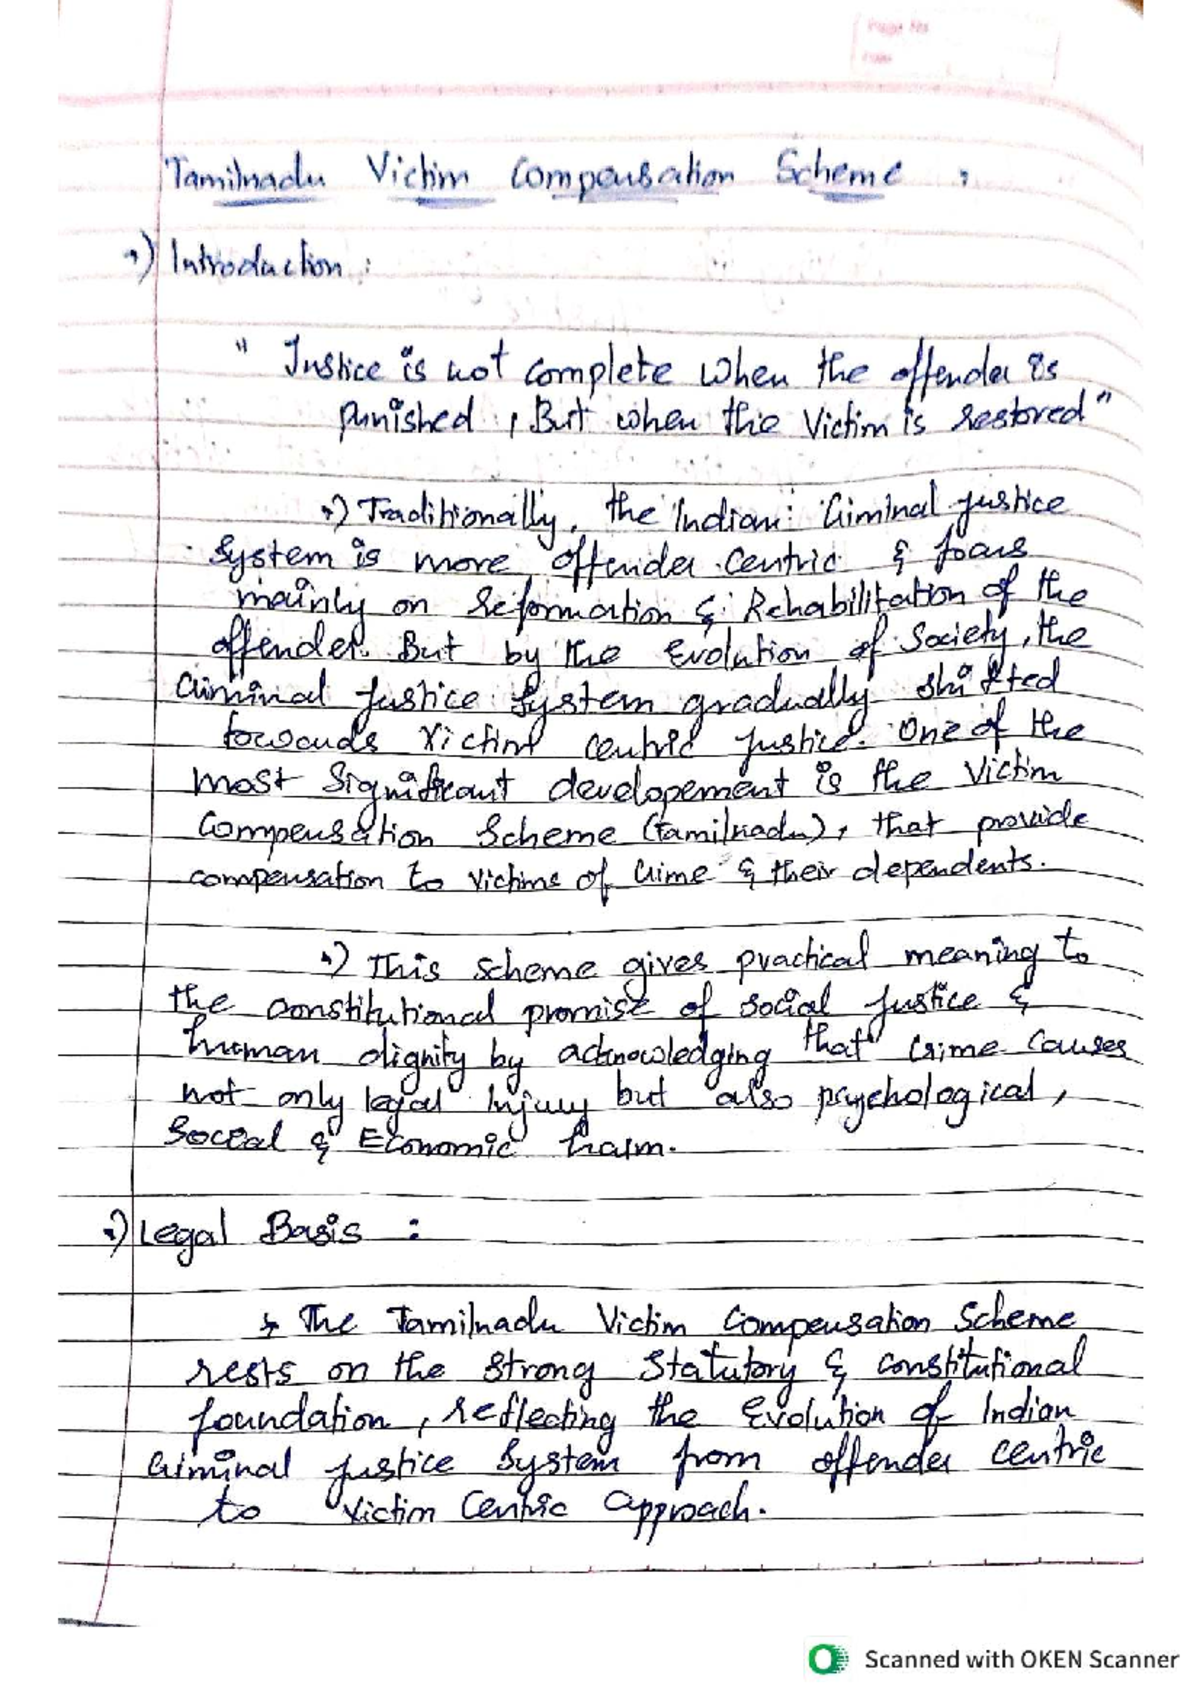 Page No
Date
Tamilnadu Victim Compensation Scheme :
•) Introduction :
" Justice is not complete when the offender is
punished , But when the Victim is restored"
•) Traditionally, the Indian Criminal justice
System is more offender centric & focus
mainly on Reformation & Rehabilitation of the
offender. But by the Evolution of Society, the
Criminal Justice System gradually shifted
towards Victim centric justice. One of the
most Significant developement is the Victim
Compensation Scheme (Tamilnadu), that provide
compensation to victims of Crime & their dependents.
•) This scheme gives practical meaning to
the constitutional promise of social Justice &
human dignity by acknowledging that crime causes
not only legal Injury but also psychological,
Social & Economic harm.
•) Legal Basis :
↳ The Tamilnadu Victim Compensation Scheme
rests on the strong statutory & constitutional
foundation, reflecting the Evolution of Indian
Criminal justice System from offender centric
to Victim Centric approach.
Scanned with OKEN Scanner